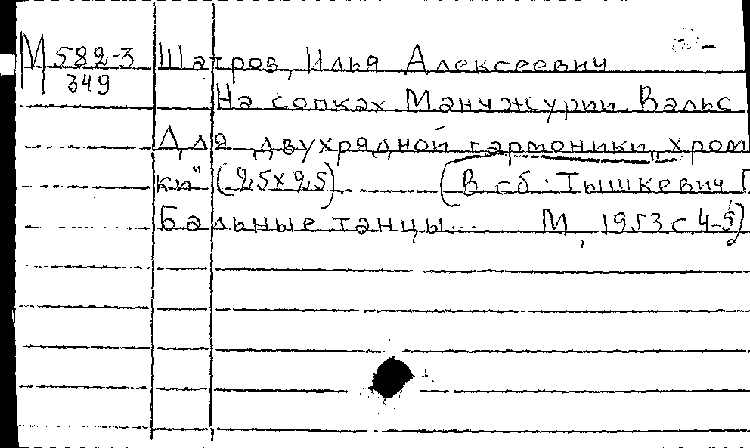 М 582-3 Шатров, Илья Алексеевич
349
На сопках Манчжурии. Вальс
Для двухрядной гармоники „хром
ки" (25х25). (В сб.: Тышкевич Г
Бальные танцы... М, 1953 с 4-5)